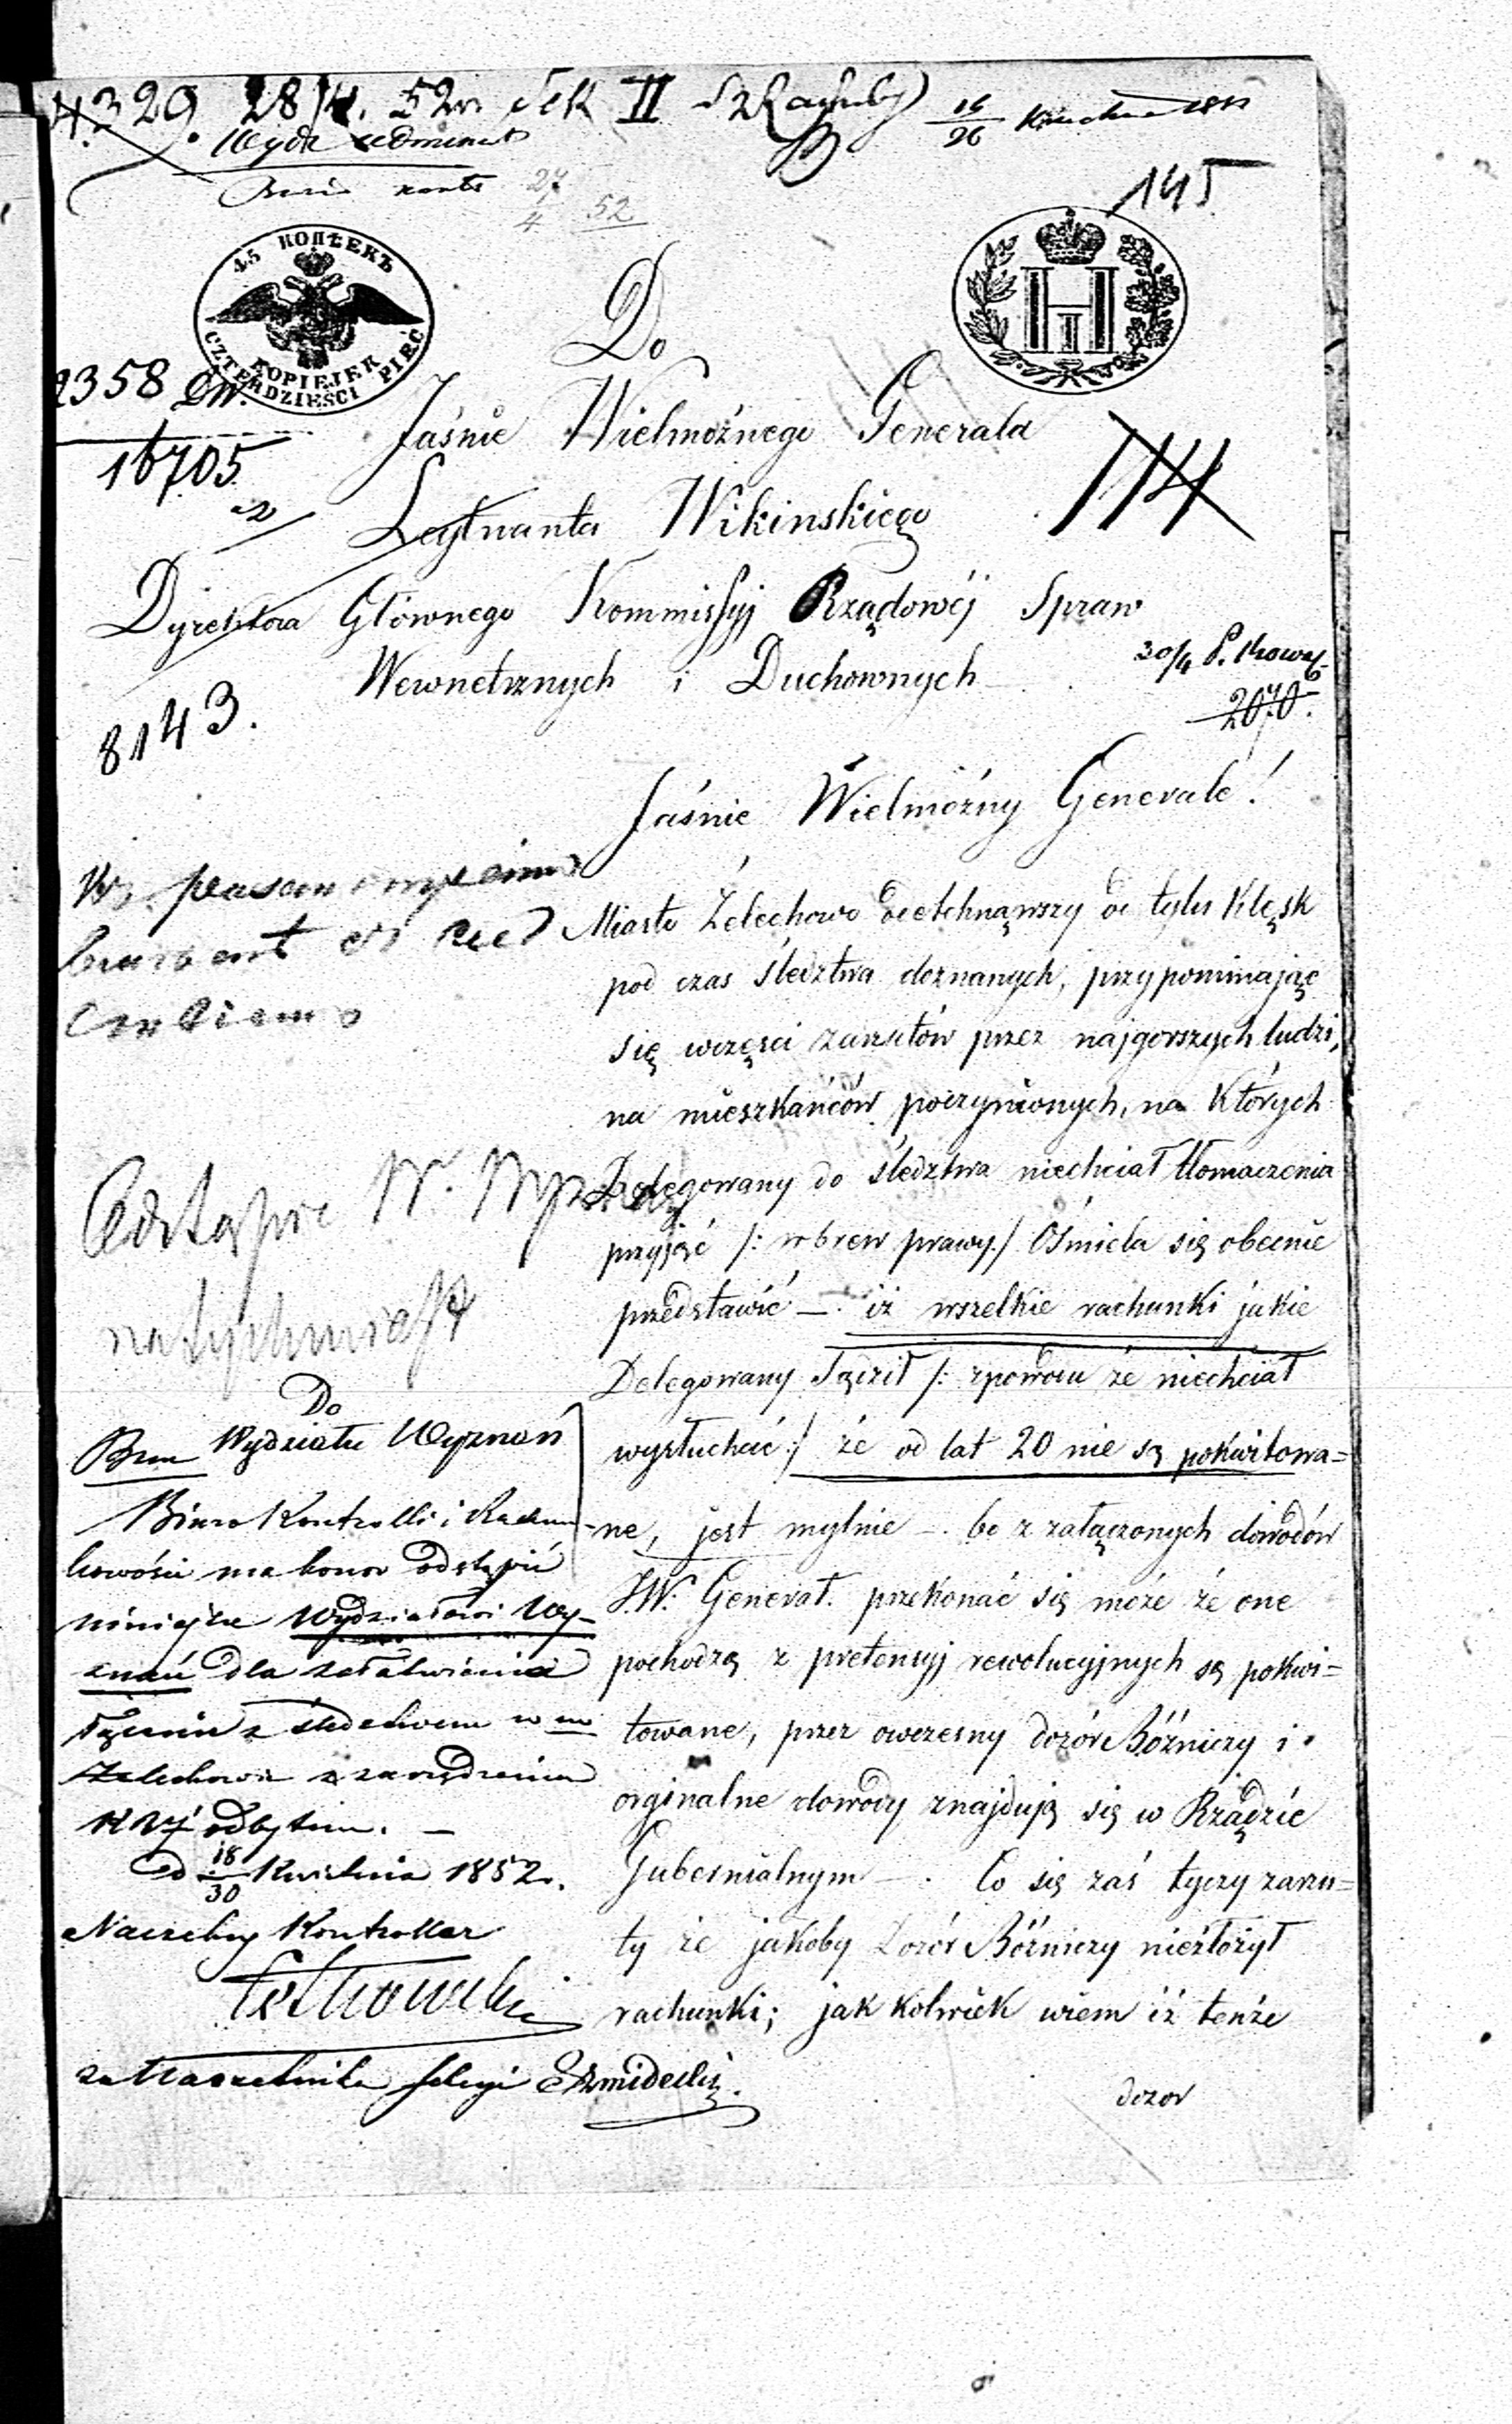 329 28/4 52 r. Sek II
Wydz
27/4 52
16/26 Kwietnia
145
45 КОПѢЕКЪ
KOPIEJEK
CZTERDZIEŚCI PIĘĆ
Н I
2358
16705
8143.
114
Do
Jaśnie Wielmożnego Generała
Leytnanta Wikinskiego
Dyrektora Głównego Kommissyj Rządowéj Spraw
Wewnetrznych i Duchownych
30/4
2070.
Jaśnie Wielmożny Generale!
Miasto Żelechowo odetchnąwszy od tylu klęsk
pod czas śledztwa doznanych, przypominając
się wczęsci zarzutów przez najgorszych ludzi,
na mieszkańców poczynionych, na których
Delegowany do śledztwa niechciał tłomaczenia
przyjąć /: wbrew prawy :/ Ośmiela się obecnie
przedstawić —. iż wszelkie rachunki jakie
Delegowany Sądził /: zpowodu że niechciał
wysłuchać :/ że od lat 20 nie są pokwitowa=
ne, jest mylnie —. bo z załączonych dowodów
J.W. Generał. przekonać się może że one
pochodzą z pretensyj rewolucyjnych są pokwi=
towane, przez owczesny dozór Bóżniczy i
orginalne dowody znajdują się w Rządzie
Gubernialnym —. Co się zaś tyczy zarzu=
ty że jakoby Dozór Bóżniczy niezłożył
rachunki; jak kolwiek wiem iż tenże
dozor
Odstąpić W.
natychmiast
Do
Wydziału Wyznań
Biuro Kontrolli i Rachun-
kowości ma honor odstąpić
niniejsze Wydziałowi Wy-
znań dla załatwienia
łącznie z śledztwem w m
Żelechowie z zarządzenia
odbytem. —
d 18/30 Kwietnia 1852 r.
Naczelny Kontroller
za Naczelnika Sekcyi